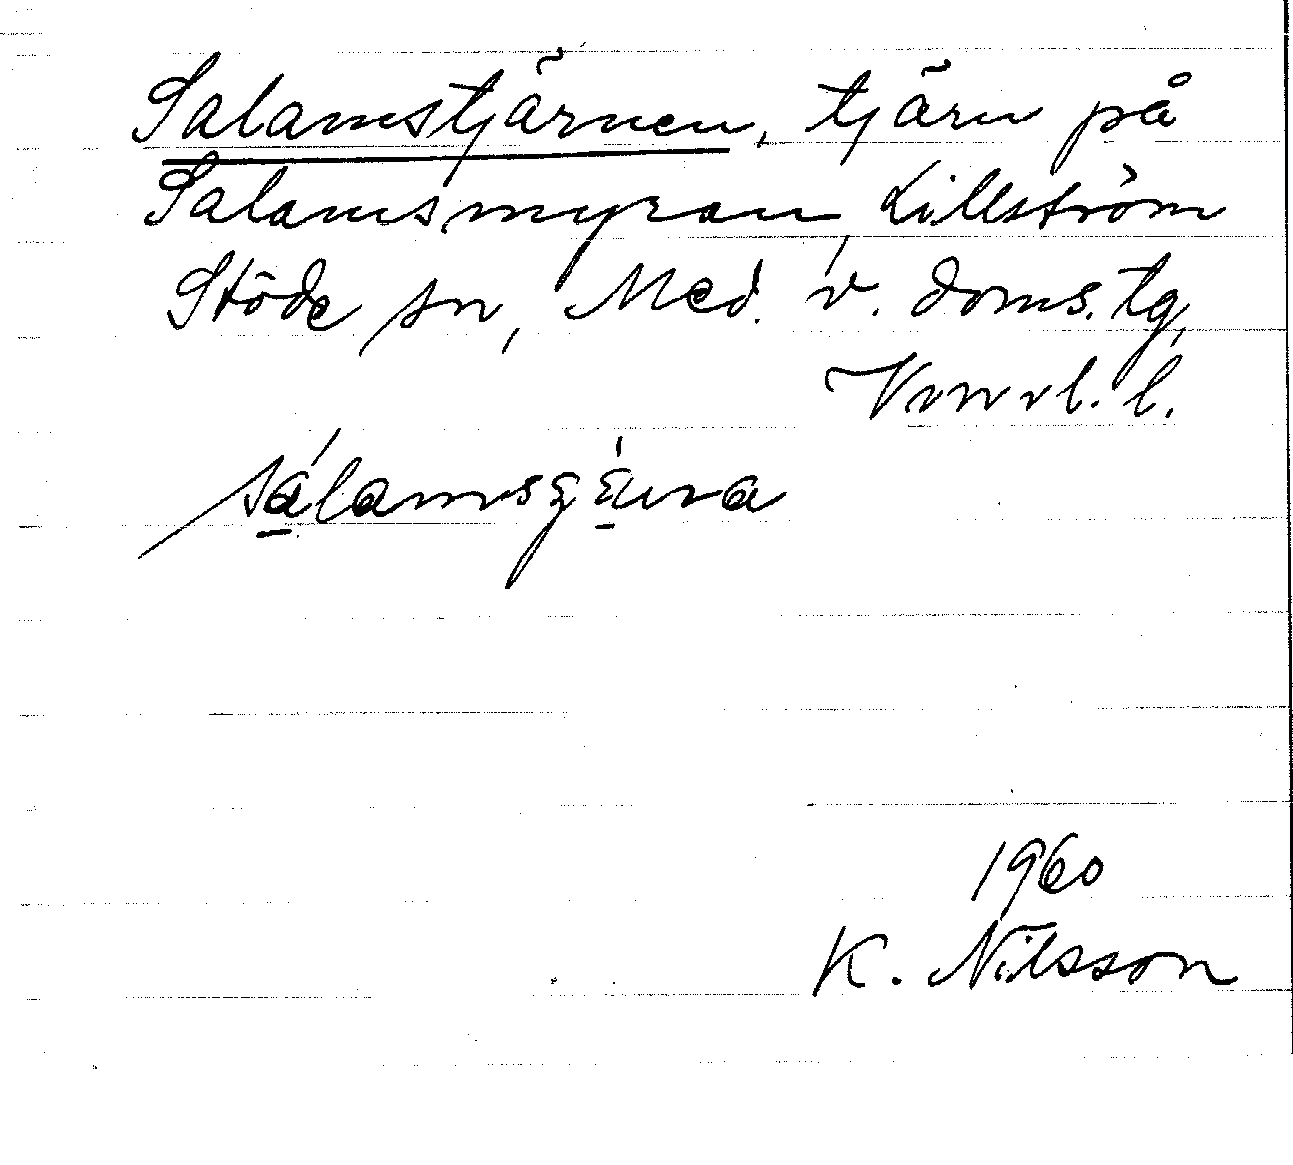 Salamstjärnen, tjärn på
Salamsmyran, Lillström
Stöde sn, Med. v. doms. tg,
Vnrl. l.
1960
K. Nilsson